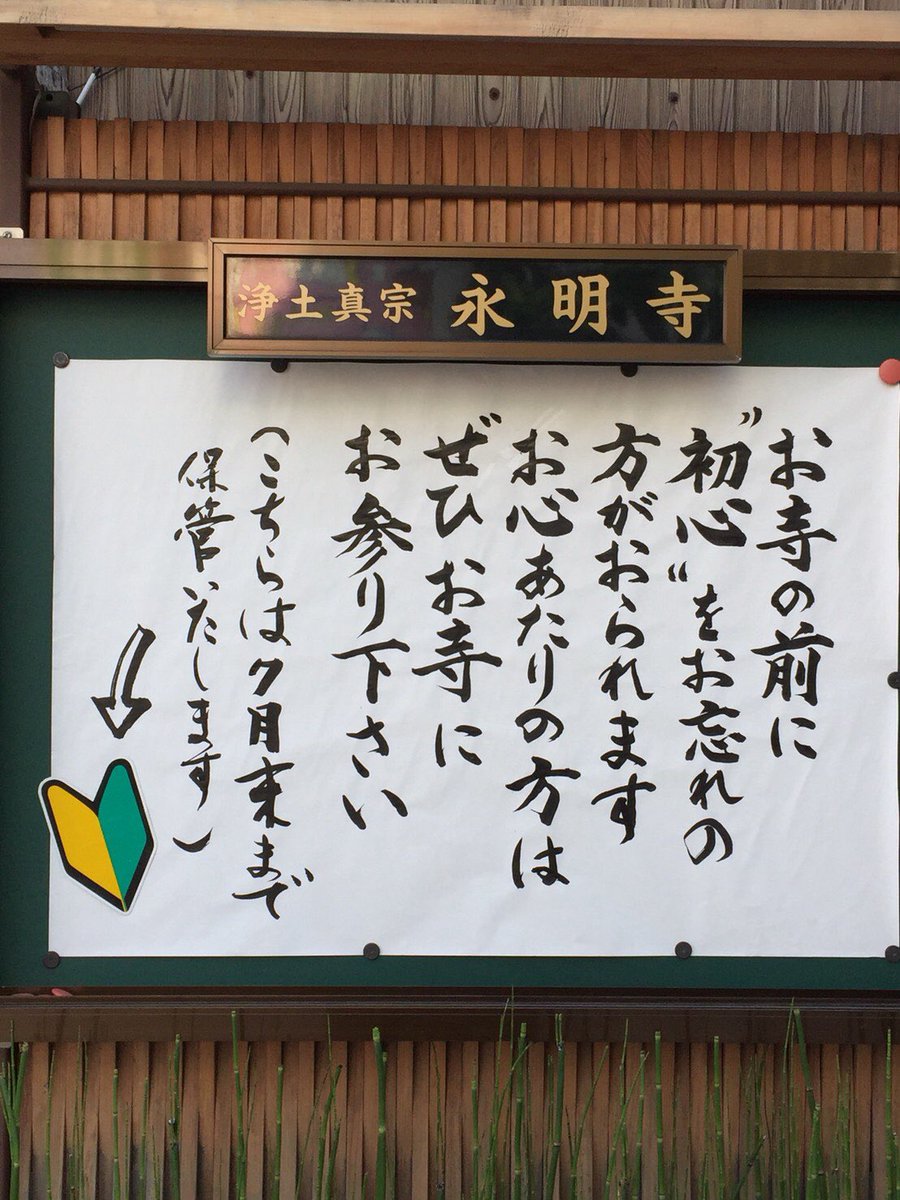 浄土真宗 永明寺
お寺の前に
〝初心〟をお忘れの
方がおられます
お心あたりの方は
ぜひお寺に
お参り下さい
(こちらは7月末まで
保管いたします)